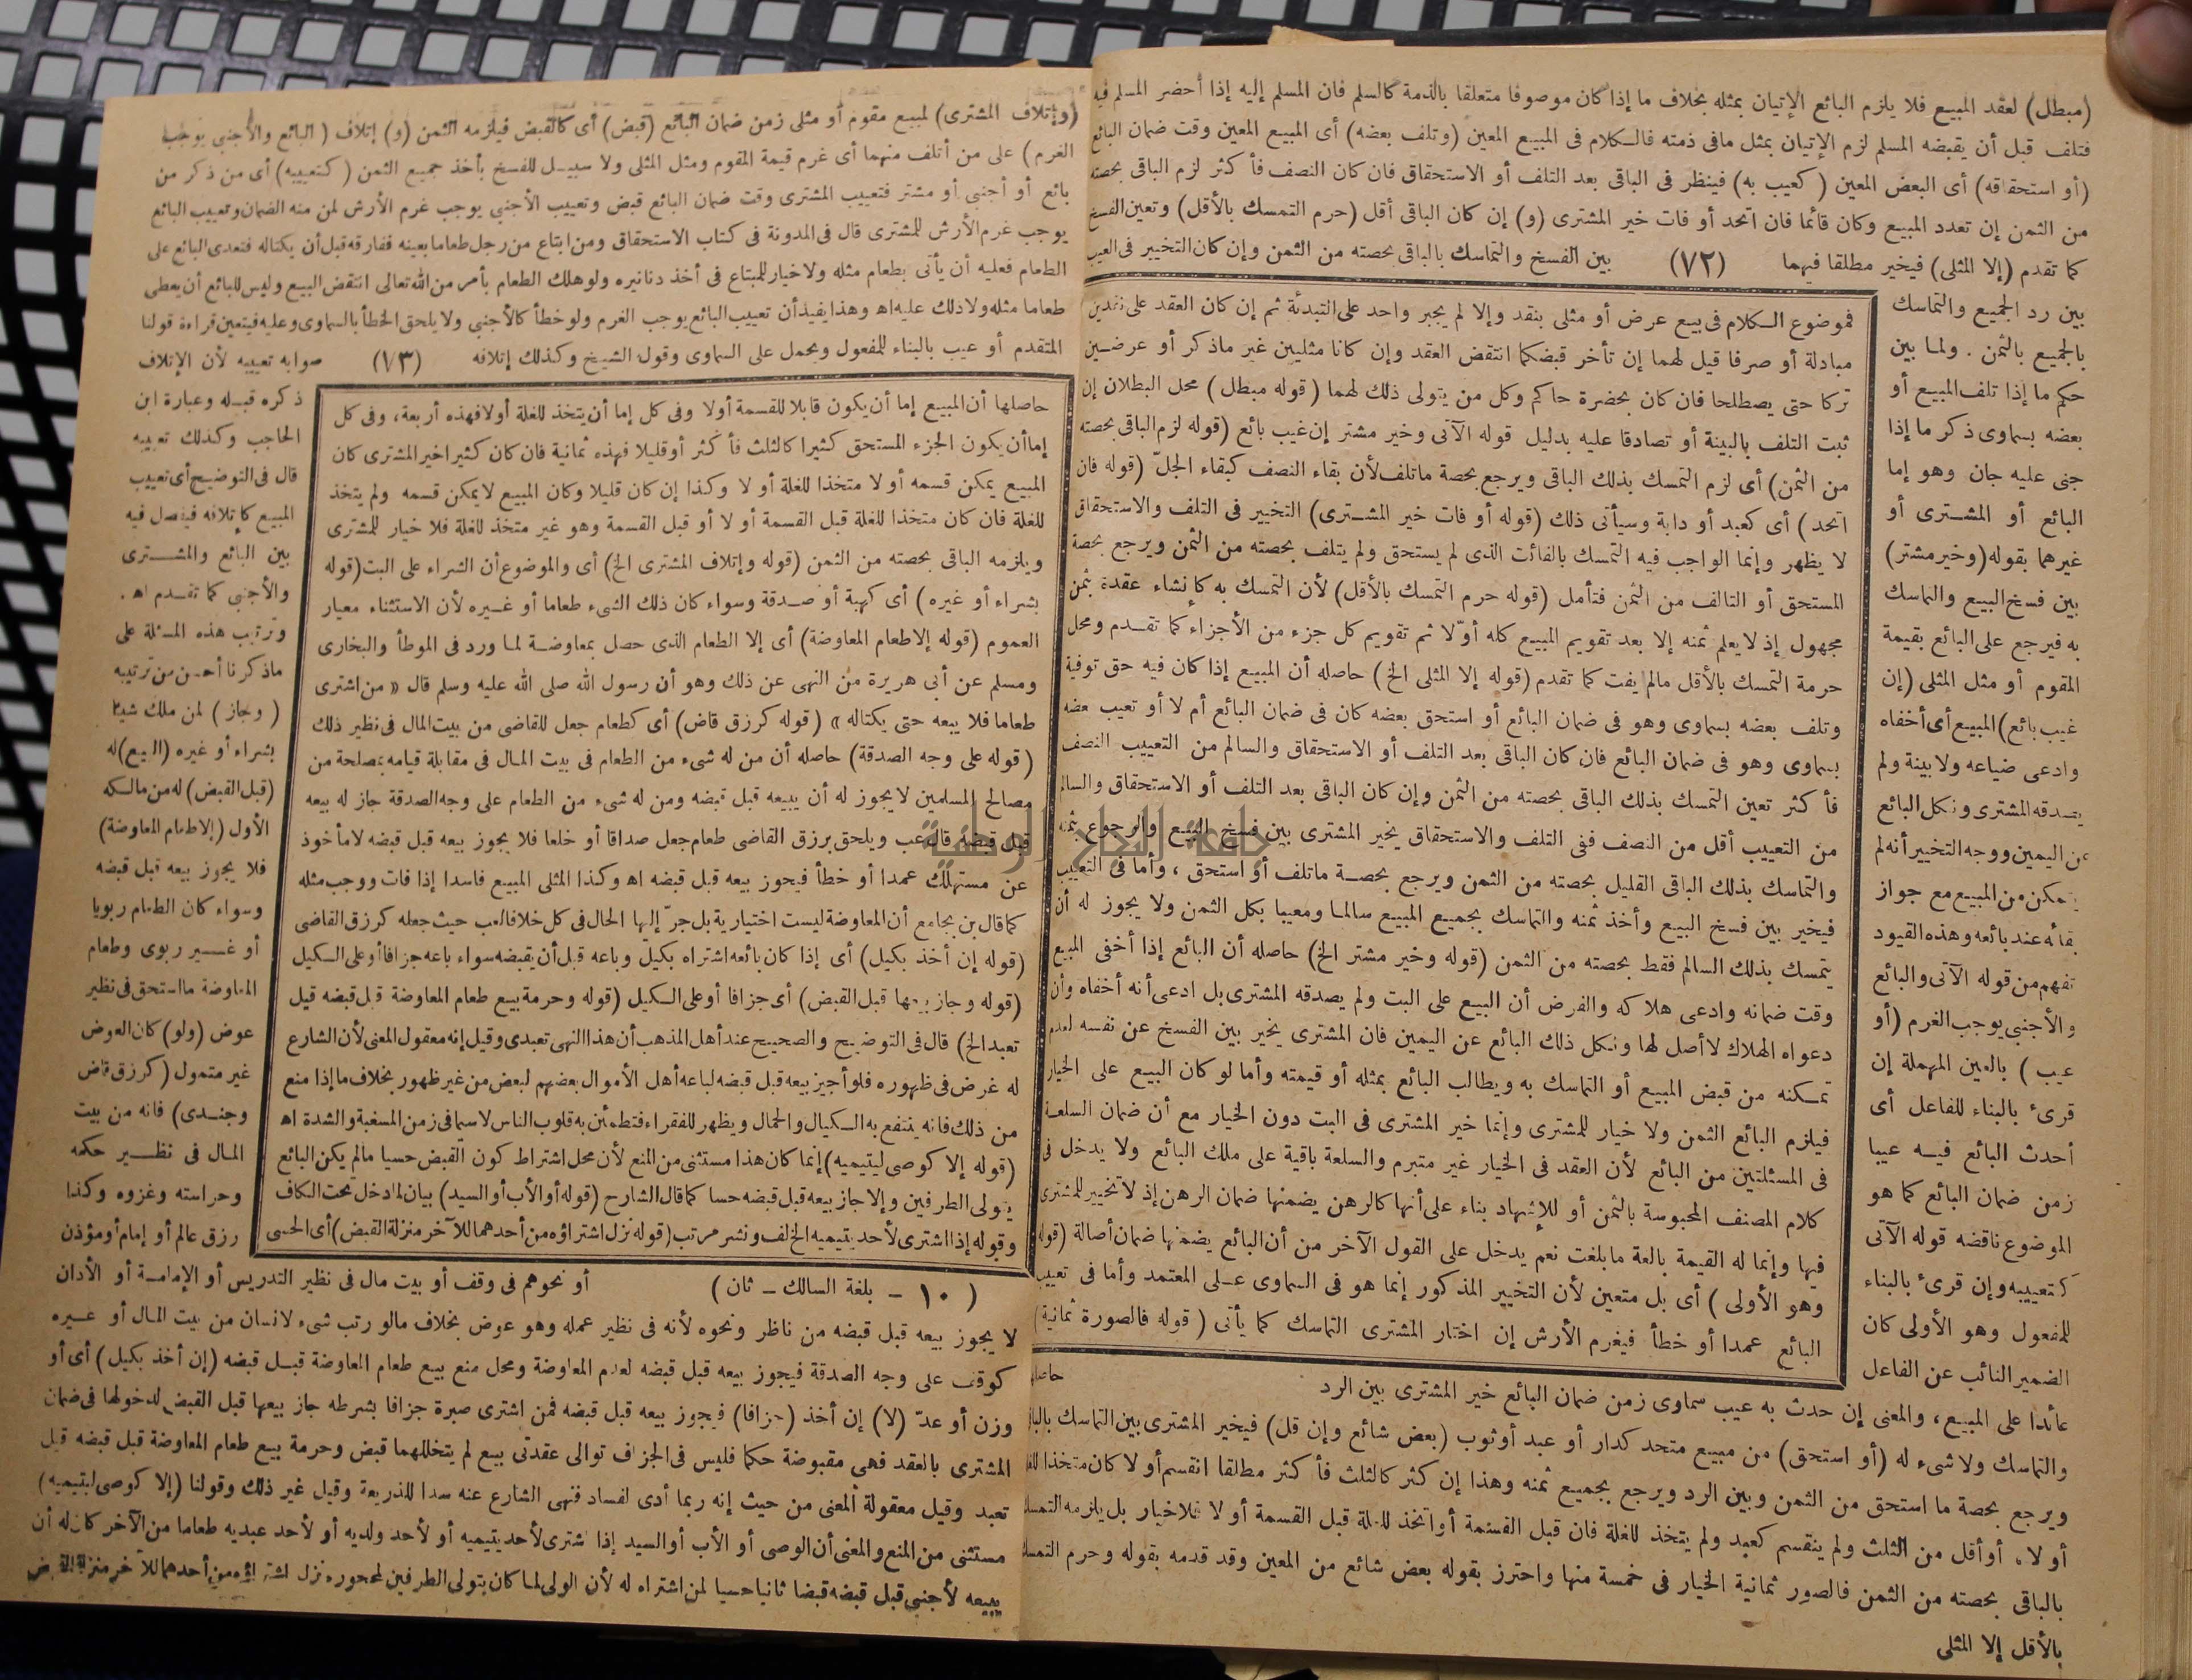 (مبطل) لعقد المبيع فلا يلزم البائع الإتيان بمثله بخلاف ما إذا كان موصوفا متعلقا بالذمة كالسلم فان المسلم إليه إذا أحضر المسلم فيه
فتلف قبل أن يقبضه المسلم لزم الإتيان بمثل مافى ذمته فالكلام فى المبيع المعين (وتلف بعضه) أى المبيع المعين وقت ضمان البائع
(أو استحقاقه) أى البعض المعين (كعيب به) فينظر فى الباقى بعد التلف أو الاستحقاق فان كان النصف فأكثر لزم الباقى بحصته
من الثمن إن تعدد المبيع وكان قائما فان اتحد أو فات خير المشترى (و) إن كان الباقى أقل (حرم التمسك بالأقل) وتعين الفسخ
كما تقدم (إلا المثلى) فيخير مطلقا فيهما (٧٢) بين الفسخ والتماسك بالباقى بحصته من الثمن وإن كان التخيير فى العيب
بين رد الجميع والتماسك
بالجميع بالثمن . ولما بين
حكم ما إذا تلف المبيع أو
بعضه بسماوى ذكر ما إذا
جنى عليه جان وهو إما
البائع أو المشترى أو
غيرهما بقوله (وخير مشتر)
بين فسخ البيع والتماسك
به فيرجع على البائع بقيمة
المقوم أو مثل المثلى (إن
غيب بائع) المبيع أى أخفاه
وادعى ضياعه ولا بينة ولم
يصدقه المشترى ونكل البائع
عن اليمين ووجه التخيير أنه لم
يتمكن من المبيع مع جواز
بقائه عند بائعه وهذه القيود
تفهم من قوله الآتى والبائع
والأجنبى يوجب الغرم (أو
عيب) بالعين المهملة إن
قرئ بالبناء للفاعل أى
أحدث البائع فيه عيبا
زمن ضمان البائع كما هو
الموضوع ناقضه قوله الآتى
كتعييبه وإن قرئ بالبناء
للمفعول وهو الأولى كان
الضمير النائب عن الفاعل
فموضوع الكلام فى بيع عرض أو مثلى بنقد وإلا لم يجبر واحد على التبدئة ثم إن كان العقد على نقدين
مبادلة أو صرفا قيل لهما إن تأخر قبضكما انتقض العقد وإن كانا مثليين غير ماذكر أو عرضين
تركا حتى يصطلحا فان كان بحضرة حاكم وكل من يتولى ذلك لهما (قوله مبطل) محل البطلان إن
ثبت التلف بالبينة أو تصادقا عليه بدليل قوله الآتى وخير مشتر إن غيب بائع (قوله لزم الباقى بحصته
من الثمن) أى لزم التمسك بذلك الباقى ويرجع بحصة ماتلف لأن بقاء النصف كبقاء الجلّ (قوله فان
اتحد) أى كعبد أو دابة وسيأتى ذلك (قوله أو فات خير المشترى) التخيير فى التلف والاستحقاق
لا يظهر وإنما الواجب فيه التمسك بالفائت الذى لم يستحق ولم يتلف بحصته من الثمن ويرجع بحصة
المستحق أو التالف من الثمن فتأمل (قوله حرم التمسك بالأقل) لأن التمسك به كإنشاء عقدة بثمن
مجهول إذ لا يعلم ثمنه إلا بعد تقويم المبيع كله أوّلا ثم تقويم كل جزء من الأجزاء كما تقدم ومحل
حرمة التمسك بالأقل مالم يفت كما تقدم (قوله إلا المثلى الخ) حاصله أن المبيع إذا كان فيه حق توفية
وتلف بعضه بسماوى وهو فى ضمان البائع أو استحق بعضه كان فى ضمان البائع أم لا أو تعيب بعضه
بسماوى وهو فى ضمان البائع فان كان الباقى بعد التلف أو الاستحقاق والسالم من التعييب النصف
فأكثر تعين التمسك بذلك الباقى بحصته من الثمن وإن كان الباقى بعد التلف أو الاستحقاق والسالم
من التعييب أقل من النصف ففى التلف والاستحقاق يخير المشترى بين فسخ البيع والرجوع بثمنه
والتماسك بذلك الباقى القليل بحصته من الثمن ويرجع بحصة ماتلف أو استحق ، وأما فى التعييب
فيخير بين فسخ البيع وأخذ ثمنه والتماسك بجميع المبيع سالما ومعيبا بكل الثمن ولا يجوز له أن
يتمسك بذلك السالم فقط بحصته من الثمن (قوله وخير مشتر الخ) حاصله أن البائع إذا أخفى المبيع
وقت ضمانه وادعى هلاكه والفرض أن البيع على البت ولم يصدقه المشترى بل ادعى أنه أخفاه وأن
دعواه الهلاك لا أصل لها ونكل ذلك البائع عن اليمين فان المشترى يخير بين الفسخ عن نفسه لعدم
تمكنه من قبض المبيع أو التماسك به ويطالب البائع بمثله أو قيمته وأما لو كان البيع على الخيار
فيلزم البائع الثمن ولا خيار للمشترى وإنما خير المشترى فى البت دون الخيار مع أن ضمان السلعة
فى المسئلتين من البائع لأن العقد فى الخيار غير متبرم والسلعة باقية على ملك البائع ولا يدخل فى
كلام المصنف المحبوسة بالثمن أو للإشهاد بناء على أنها كالرهن يضمنها ضمان الرهن إذ لا تخيير للمشترى
فيها وإنما له القيمة بالغة مابلغت نعم يدخل على القول الآخر من أن البائع يضمنها ضمان أصالة (قوله
وهو الأولى) أى بل متعين لأن التخيير المذكور إنما هو فى السماوى على المعتمد وأما فى تعييب
البائع عمدا أو خطأ فيغرم الأرش إن اختار المشترى التماسك كما يأتى (قوله فالصورة ثمانية)
عائدا على المبيع، والمعنى إن حدث به عيب سماوى زمن ضمان البائع خير المشترى بين الرد
والتماسك ولا شىء له (أو استحق) من مبيع متحد كدار أو عبد أو ثوب (بعض شائع وإن قل) فيخير المشترى بين التماسك بالباقى
ويرجع بحصة ما استحق من الثمن وبين الرد ويرجع بجميع ثمنه وهذا إن كثر كالثلث فأكثر مطلقا انقسم أو لا كان متخذا للغلة
أو لا، أو أقل من الثلث ولم ينقسم كعبد ولم يتخذ للغلة فان قبل القسمة أو اتخذ للغلة قبل القسمة أو لا فلا خيار بل يلزمه التمسك
بالباقى بحصته من الثمن فالصور ثمانية الخيار فى خمسة منها واحترز بقوله بعض شائع من المعين وقد قدمه بقوله وحرم التمسك
بالأقل إلا المثلى
(وإتلاف المشترى) لمبيع مقوم أو مثلى زمن ضمان البائع (قبض) أى كالقبض فيلزمه الثمن (و) إتلاف (البائع والأجنبى يوجب
الغرم) على من أتلف منهما أى غرم قيمة المقوم ومثل المثلى ولا سبيل للفسخ بأخذ جميع الثمن (كتعييبه) أى من ذكر من
بائع أو أجنبى أو مشتر فتعييب المشترى وقت ضمان البائع قبض وتعييب الأجنبى يوجب غرم الأرش لمن منه الضمان وتعييب البائع
يوجب غرم الأرش للمشترى قال فى المدونة فى كتاب الاستحقاق ومن ابتاع من رجل طعاما بعينه ففارقه قبل أن يكتاله فتعدى البائع على
الطعام فعليه أن يأتى بطعام مثله ولا خيار للمبتاع فى أخذ دنانيره ولو هلك الطعام بأمر من الله تعالى انتقض البيع وليس للبائع أن يعطى
طعاما مثله ولا ذلك عليه اه وهذا يفيد أن تعييب البائع يوجب الغرم ولو خطأ كالأجنبى ولا يلحق الخطأ بالسماوى وعليه فيتعين قراءة قولنا
المتقدم أو عيب بالبناء للمفعول ويحمل على السماوى وقول الشيخ وكذلك إتلافه (٧٣) صوابه تعييبه لأن الإتلاف
حاصلها أن المبيع إما أن يكون قابلا للقسمة أولا وفى كل إما أن يتخذ للغلة أولا فهذه أربعة، وفى كل
إما أن يكون الجزء المستحق كثيرا كالثلث فأكثر أو قليلا فهذه ثمانية فان كان كثيرا خير المشترى كان
المبيع يمكن قسمه أو لا متخذا للغلة أو لا وكذا إن كان قليلا وكان المبيع لا يمكن قسمه ولم يتخذ
للغلة فان كان متخذا للغلة قبل القسمة أو لا أو قبل القسمة وهو غير متخذ للغلة فلا خيار للمشترى
ويلزمه الباقى بحصته من الثمن (قوله وإتلاف المشترى الخ) أى والموضوع أن الشراء على البت (قوله
بشراء أو غيره) أى كهبة أو صدقة وسواء كان ذلك الشىء طعاما أو غيره لأن الاستثناء معيار
العموم (قوله إلا طعام المعاوضة) أى إلا الطعام الذى حصل بمعاوضة لما ورد فى الموطأ والبخارى
ومسلم عن أبى هريرة من النهى عن ذلك وهو أن رسول الله صلى الله عليه وسلم قال «من اشترى
طعاما فلا يبعه حتى يكتاله» (قوله كرزق قاض) أى كطعام جعل للقاضى من بيت المال فى نظير ذلك
(قوله على وجه الصدقة) حاصله أن من له شىء من الطعام فى بيت المال فى مقابلة قيامه بمصلحة من
مصالح المسلمين لا يجوز له أن يبيعه قبل قبضه ومن له شىء من الطعام على وجه الصدقة جاز له بيعه
قبل قبضه قال عب ويلحق برزق القاضى طعام جعل صداقا أو خلعا فلا يجوز بيعه قبل قبضه لا مأخوذ
عن مستهلك عمدا أو خطأ فيجوز بيعه قبل قبضه اه وكذا المثلى المبيع فاسدا إذا فات ووجب مثله
كما قال بن بجامع أن المعاوضة ليست اختيارية بل جرّ إليها الحال فى كل خلافا لعب حيث جعله كرزق القاضى
(قوله إن أخذ بكيل) أى إذا كان بائعه اشتراه بكيل وباعه قبل أن يقبضه سواء باعه جزافا أو على الكيل
(قوله وجاز بيعها قبل القبض) أى جزافا أو على الكيل (قوله وحرمة بيع طعام المعاوضة قبل قبضه قيل
تعبد الخ) قال فى التوضيح والصحيح عند أهل المذهب أن هذا النهى تعبدى وقيل إنه معقول المعنى لأن الشارع
له غرض فى ظهوره فلو أجيز بيعه قبل قبضه لباعه أهل الأموال بعضهم لبعض من غير ظهور بخلاف ما إذا منع
من ذلك فانه ينتفع به الكيال والحمال ويظهر للفقراء فتطمئن به قلوب الناس لاسيما فى زمن المسغبة والشدة اه
(قوله إلا كوصى ليتيميه) إنما كان هذا مستثنى من المنع لأن محل اشتراط كون القبض حسيا مالم يكن البائع
يتولى الطرفين وإلا جاز بيعه قبل قبضه حسا كما قال الشارح (قوله أو الأب أو السيد) بيان لما دخل تحت الكاف
وقوله إذا اشترى لأحد يتيميه الخ لف ونشر مرتب (قوله نزل اشتراؤه من أحدهما للآخر منزلة القبض) أى الحسى
ذكره قبله وعبارة ابن
الحاجب وكذلك تعييبه
قال فى التوضيح أى تعييب
المبيع كإتلافه فيفصل فيه
بين البائع والمشترى
والأجنبى كما تقدم اه .
وترتيب هذه المسئلة على
ماذكرنا أحسن من ترتيبه
(وجاز) لمن ملك شيئا
بشراء أو غيره (البيع) له
(قبل القبض) له من مالكه
الأول (إلا طعام المعاوضة)
فلا يجوز بيعه قبل قبضه
وسواء كان الطعام ربويا
أو غير ربوى وطعام
المعاوضة ما استحق فى نظير
عوض (ولو) كان العوض
غير متمول (كرزق قاض
وجندى) فانه من بيت
المال فى نظير حكمه
وحراسته وغزوه وكذا
رزق عالم أو إمام أو مؤذن
أو نحوهم فى وقف أو بيت مال فى نظير التدريس أو الإمامة أو الأذان
(١٠ - بلغة السالك - ثان)
لا يجوز بيعه قبل قبضه من ناظر ونحوه لأنه فى نظير عمله وهو عوض بخلاف مالو رتب شىء لانسان من بيت المال أو غيره
كوقف على وجه الصدقة فيجوز بيعه قبل قبضه لعدم المعاوضة ومحل منع بيع طعام المعاوضة قبل قبضه (إن أخذ بكيل) أى أو
وزن أو عدّ (لا) إن أخذ (جزافا) فيجوز بيعه قبل قبضه فمن اشترى صبرة جزافا بشرطه جاز بيعها قبل القبض لدخولها فى ضمان
المشترى بالعقد فهى مقبوضة حكما فليس فى الجزاف توالى عقدتى بيع لم يتخللهما قبض وحرمة بيع طعام المعاوضة قبل قبضه قيل
تعبد وقيل معقولة المعنى من حيث إنه ربما أدى لفساد فنهى الشارع عنه سدا للذريعة وقيل غير ذلك وقولنا (إلا كوصى ليتيميه)
مستثنى من المنع والمعنى أن الوصى أو الأب أو السيد إذا اشترى لأحد يتيميه أو لأحد ولديه أو لأحد عبديه طعاما من الآخر كان له أن
يبيعه لأجنبى قبل قبضه قبضا ثانيا حسيا لمن اشتراه له لأن الولى لما كان يتولى الطرفين لمحجوره نزل اشتراؤه من أحدهما للآخر منزلة القبض
جامعة النجاح الوطنية